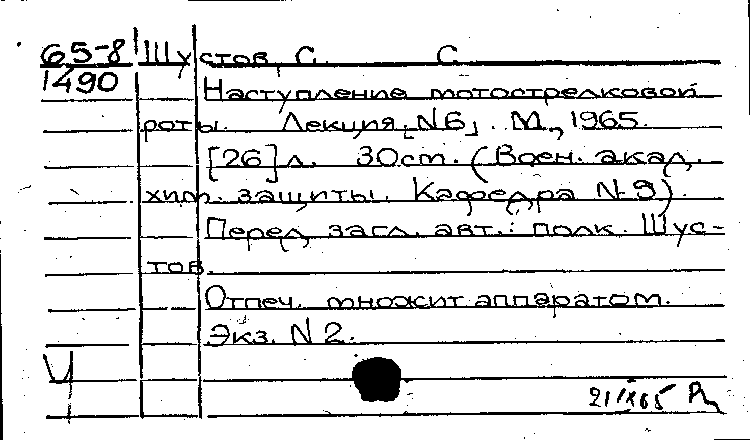 65-8 Шустов, С. С.
1490 Наступление мотострелковой
роты. Лекция [N6]. М., 1965.
[26] л. 30 см. (Воен. акад.
хим. защиты. Кафедра N 9).
Перед загл. авт.: полк. Шус-
тов.
Отпеч. множит аппаратом.
Экз. N 2.
Ч
21/IX65